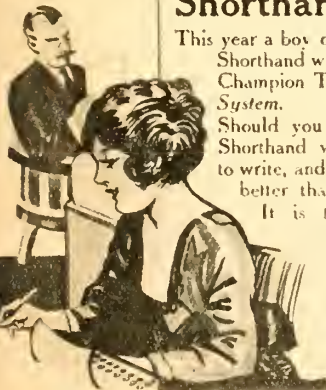 Shorthan
This year a boy
Shorthand w
Champion T
System.
Should you
Shorthand w
to write, and
better tha
It is